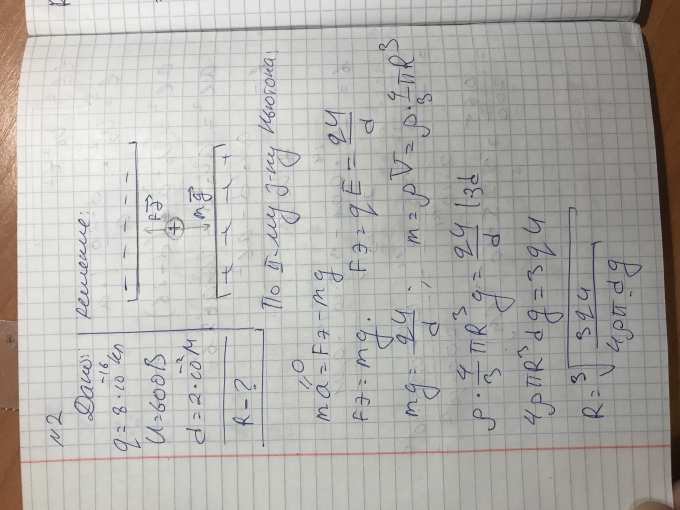 №2
Дано: Решение:
q = 8·10⁻¹⁶ Кл
U = 600 В
d = 2·10⁻³ м
R - ?
- - - - - -
Fэ
+
mg
+ + + + +
По II-му з-ну Ньютона:
ma = Fэ - mg
0
Fэ = mg. Fэ = qE = qU/d
mg = qU/d ; m = ρV = ρ·4/3 πR³
ρ·4/3 πR³ g = qU/d |3d
4ρπR³dg = 3qU
R = ³√(3qU/4ρπ·dg)